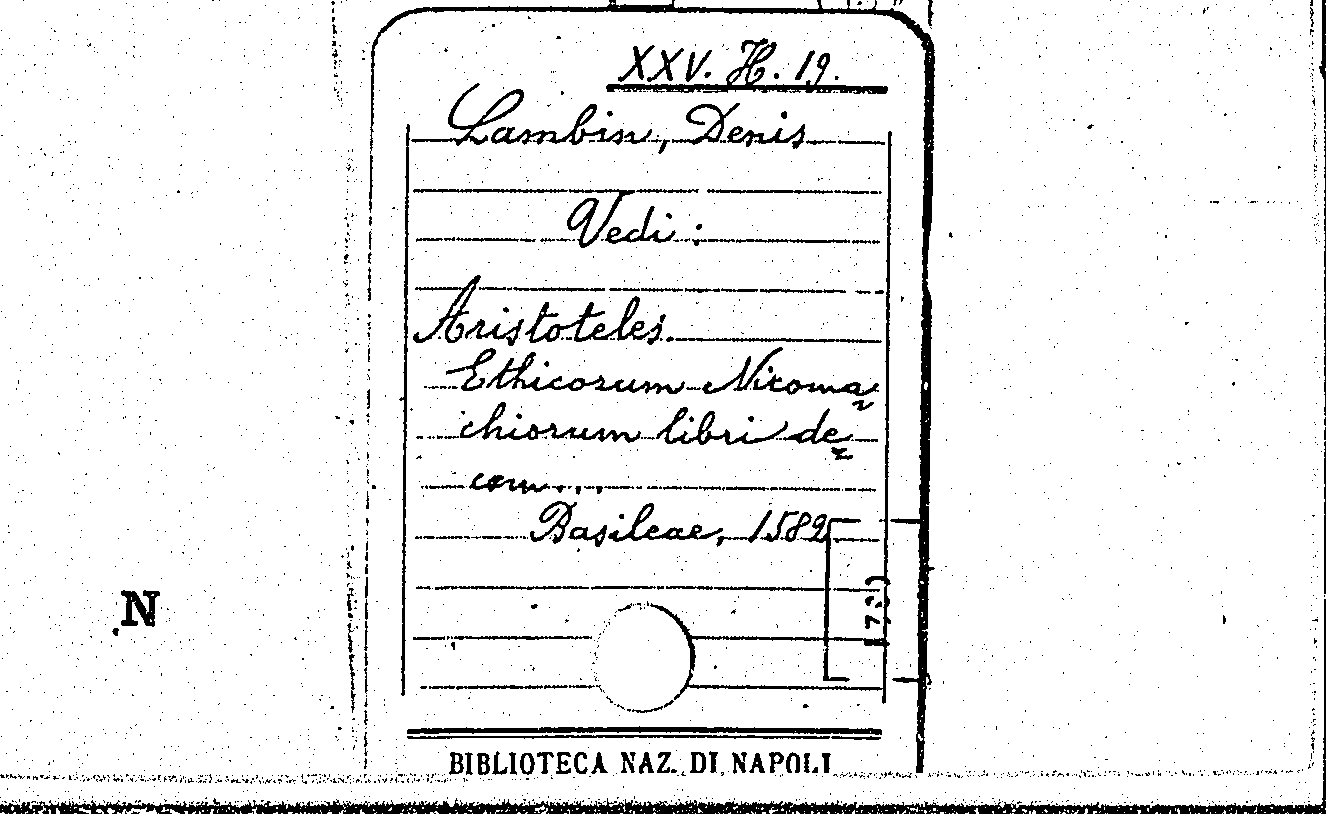 XXV. H. 19.
Lambin, Denis
Vedi :
Aristoteles.
Ethicorum Nicoma=
chiorum libri de=
cem...
Basileae, 1582
N
BIBLIOTECA NAZ. DI NAPOLI